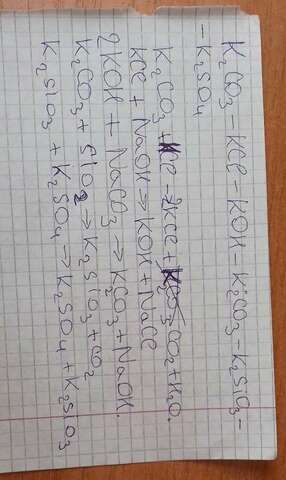 K₂CO₃ – KCl – KOH – K₂CO₃ – K₂SiO₃ –
– K₂SO₄
K₂CO₃ + HCl → 2KCl + CO₂ + H₂O.
KCl + NaOH → KOH + NaCl
2KOH + NaCO₃ → K₂CO₃ + NaOH.
K₂CO₃ + SiO₂ → K₂SiO₃ + CO₂
K₂SiO₃ + K₂SO₄ → K₂SO₄ + K₂SiO₃